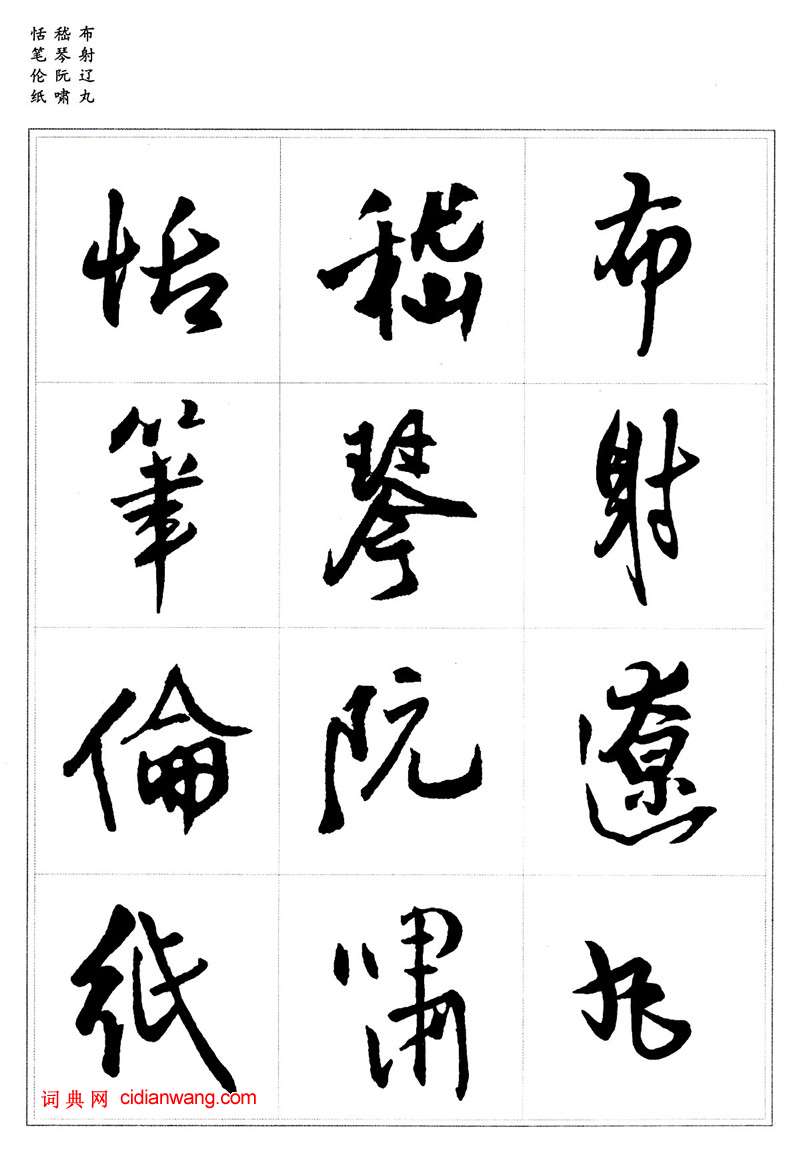 布射辽丸
嵇琴阮啸
恬笔伦纸
布射遼丸
嵇琴阮嘯
恬筆倫紙
词典网 cidianwang.com